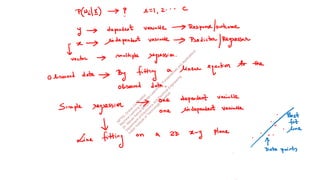 P(ωᵢ|x) → ? i=1,2... c
y → dependent variable → Response/outcome
x → independent variable → Predictor/Regressor
vector → multiple regression.
Observed data → By fitting a linear equation for the
observed data.
Simple regression → one dependent variable
one independent variable
Line fitting on a 2D x-y plane
Best
fit
line
Data points